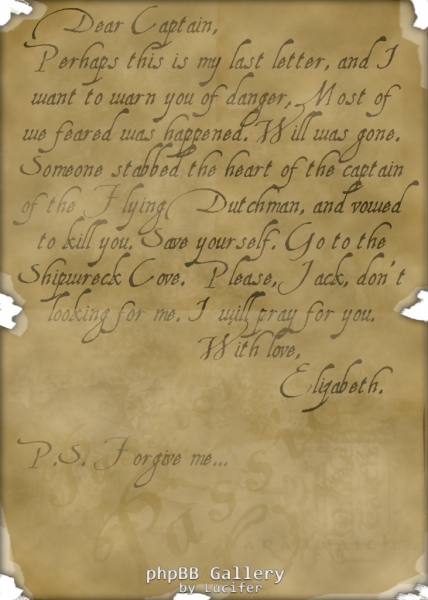 Dear Captain,
Perhaps this is my last letter, and I
want to warn you of danger, Most of
we feared was happened. Will was gone.
Someone stabbed the heart of the captain
of the Flying Dutchman, and vowed
to kill you. Save yourself. Go to the
Shipwreck Cove. Please, Jack, don't
looking for me. I will pray for you.
With love,
Elizabeth.
P.S. Forgive me...
phpBB Gallery
by Lucifer